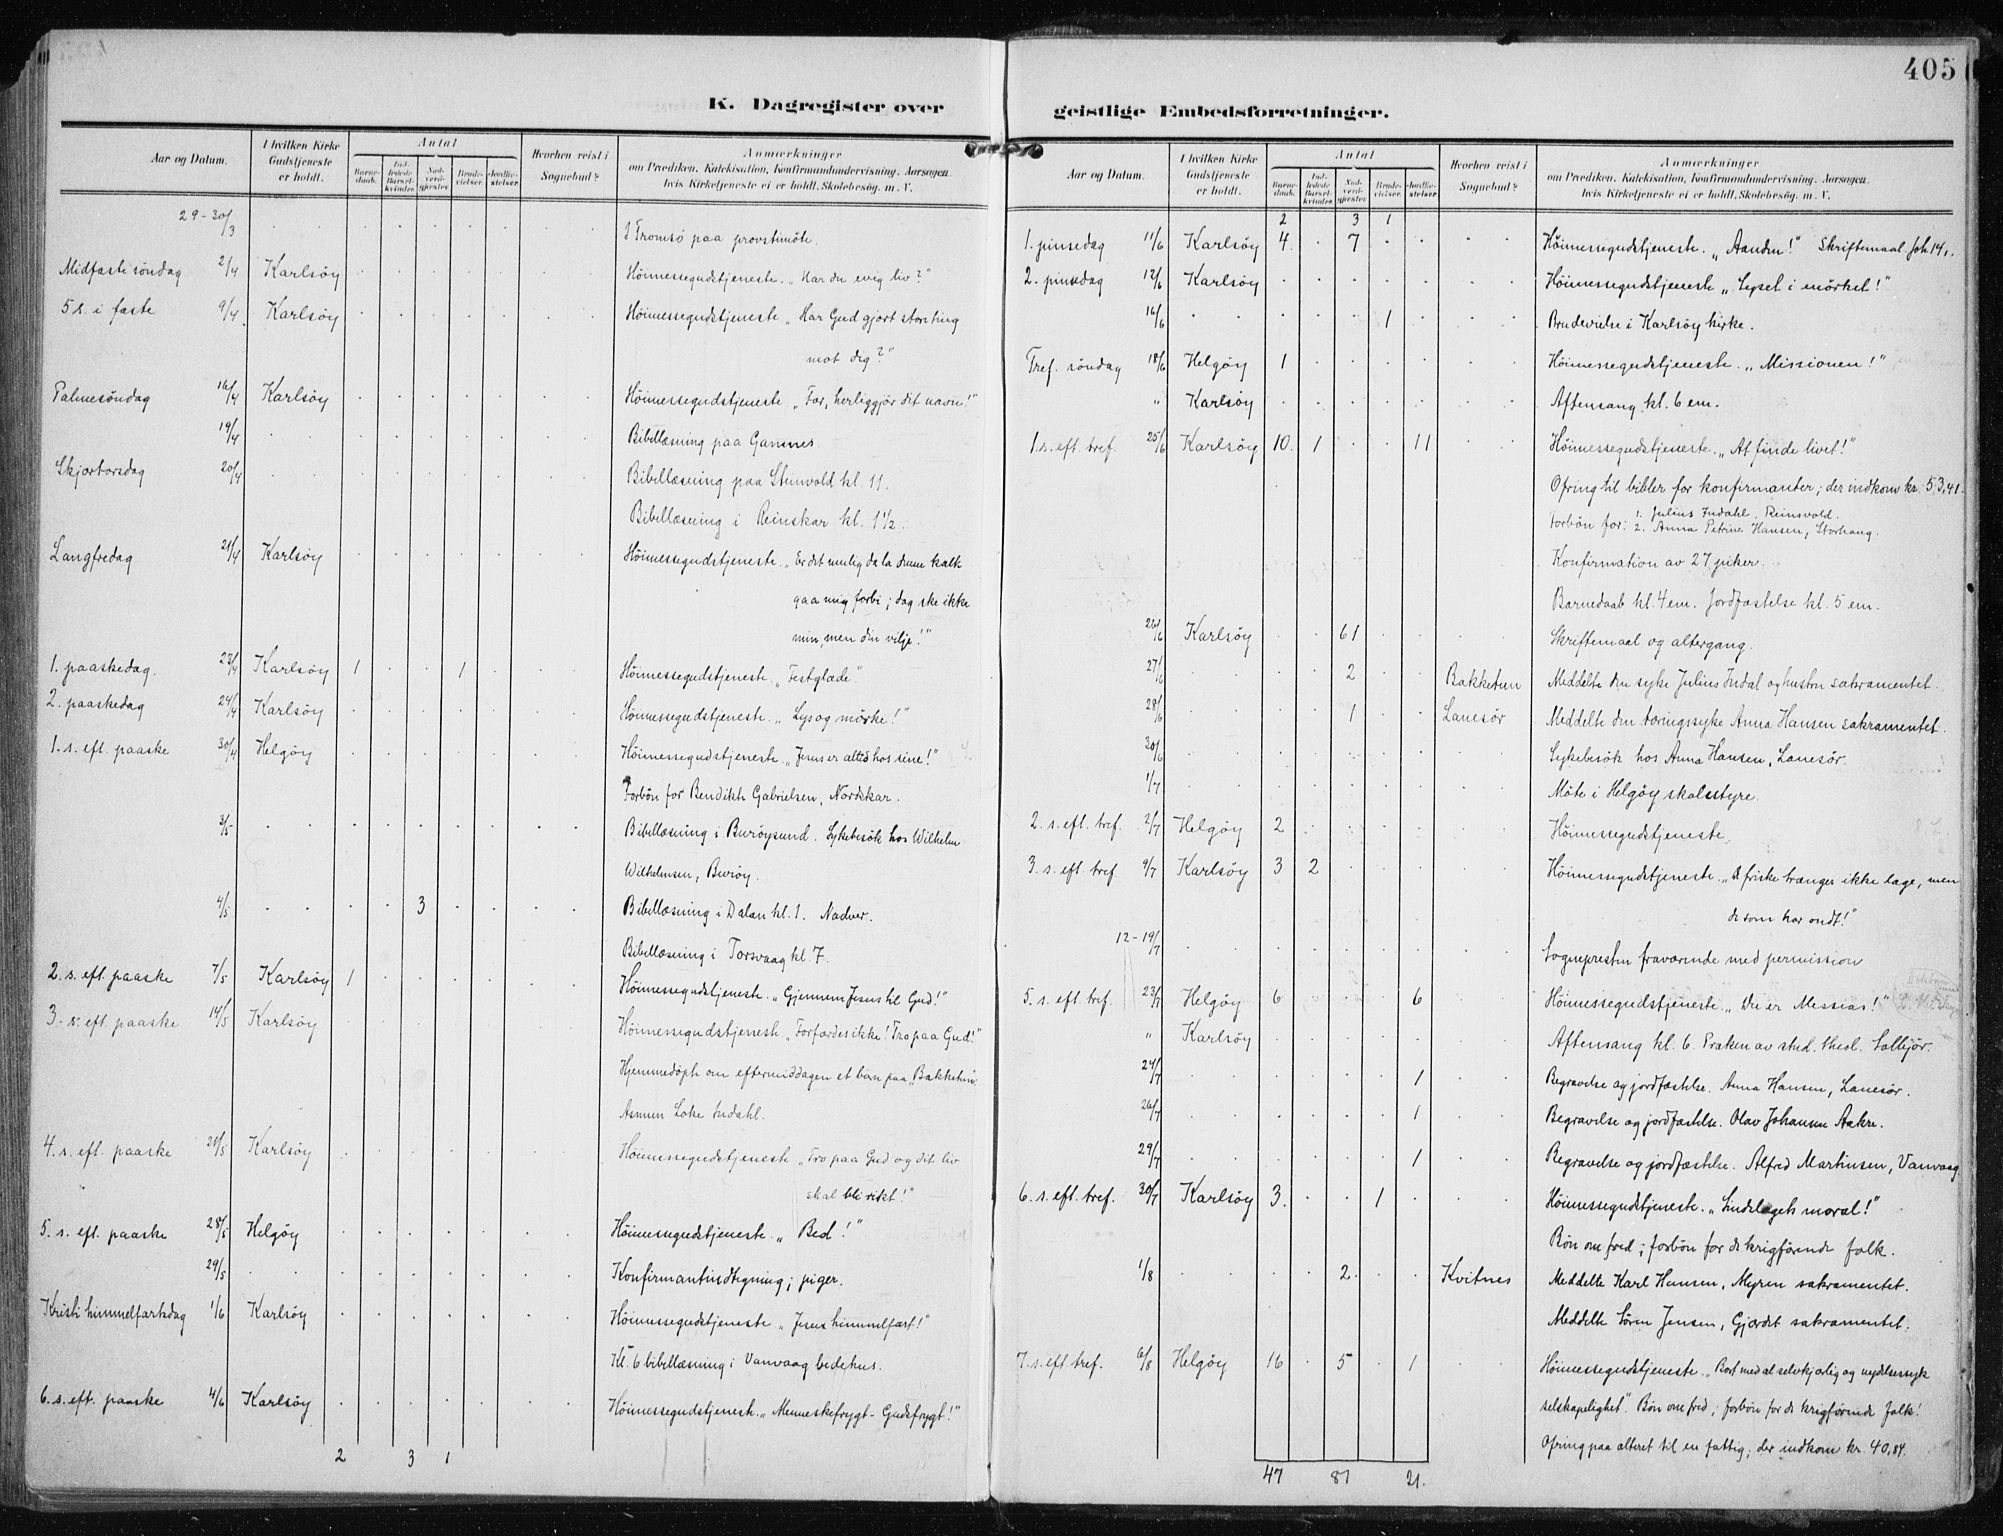 405
K. Dagregister over
Aar og Datum. I hvilken Kirke Gudstjeneste er holdt. Antal Barnedaab. Indledede Barselkvinder. Nadverdgjester. Brudevielser. Jordfæstelser. Hvorhen reist i Sognebud? Anmærkninger om Prædiken, Katekisation, Konfirmandundervisning, Aarsagen hvis Kirketjeneste ei er holdt, Skolebesøg, m. V.
29-30/3 I Tromsö paa provstimöte.
Midfaste söndag 2/4 Karlsöy Höimessegudstjeneste. „Har du evig liv?"
5 s. i faste 9/4 Karlsöy Höimessegudstjeneste „Har Gud gjort store ting
mot dig?"
Palmesöndag 16/4 Karlsöy Höimessegudstjeneste „Far, herliggjör dit navn!"
19/4 Bibellæsning paa Gamnes.
Skjærtorsdag 20/4 Bibellæsning paa Steinvold kl. 11.
Bibellæsning i Reinskar kl. 1 1/2.
Langfredag 21/4 Karlsöy Höimessegudstjeneste. „Er det mulig da la denne kalk
gaa mig forbi; dog ske ikke
min, men din vilje!"
1. paaskedag. 23/4 Karlsöy 1 1 Höimessegudstjeneste. „Festglæde."
2. paaskedag 24/4 Karlsöy Höimessegudstjeneste. „Lys og mörke!"
1. s. eft. paaske 30/4 Helgöy Höimessegudstjeneste. „Jesus er altid hos sine!"
Forbön for Bendikte Gabrielsen, Nordskar.
3/5 Bibellæsning i Buröysund. Sykebesök hos Wilhelm
Wilhelmsen, Buröy.
4/5 3 Bibellæsning i Dalan kl. 1. Nadver.
Bibellæsning i Torsvaag kl. 7.
2. s. eft. paaske 7/5 Karlsöy 1 Höimessegudstjeneste. „Gjennem Jesus til Gud!"
3. s. eft. paaske 14/5 Karlsöy Höimessegudstjeneste. „Forfærdes ikke! Tro paa Gud!"
Hjemmedöpte om eftermiddagen et barn paa „Bakketun"
Asmun Loke Indahl.
4. s. eft. paaske 21/5 Karlsöy Höimessegudstjeneste „Tro paa Gud og dit liv
skal bli rikt!"
5. s. eft. paaske 28/5 Helgöy Höimessegudstjeneste. „Bed!"
29/5 Konfirmantindtegning; piger.
Kristi himmelfartsdag 1/6 Karlsöy Höimessegudstjeneste „Jesus himmelfart!"
Kl. 6 bibellæsning i Vanvaag bedehus.
6. s. eft. paaske 4/6 Karlsöy Höimessegudstjeneste. „Menneskefrygt - Gudsfrygt!"
2 3 1
geistlige Embedsforretninger.
Aar og Datum. I hvilken Kirke Gudstjeneste er holdt. Antal Barnedaab. Indledede Barselkvinder. Nadverdgjester. Brudevielser. Jordfæstelser. Hvorhen reist i Sognebud? Anmærkninger om Prædiken, Katekisation, Konfirmandundervisning, Aarsagen hvis Kirketjeneste ei er holdt, Skolebesøg, m. V.
2 3 1
1. pinsedag 11/6 Karlsöy 4 7 Höimessegudstjeneste. „Aanden!" Skriftemaal Joh 14,1.
2. pinsedag 12/6 Karlsöy Höimessegudstjeneste „Lyset i mörket!"
16/6 1 Brudevielse i Karlsöy kirke.
Tref. söndag 18/6 Helgöy 1 Höimessegudstjeneste. „Missionen!"
" Karlsöy Aftensang kl. 6 em.
1. s. eft. tref. 25/6 Karlsöy 10 1 11 Höimessegudstjeneste. „At finde livet!"
Ofring til bibler for konfirmanter; der indkom kr. 53,41.
Forbön for: 1. Julius Indahl, Reinsvold.
2. Anna Petrine Hansen, Storhaug.
Konfirmation av 27 piker.
Barnedaab kl. 4 em. Jordfæstelse kl. 5 em.
26/6 Karlsöy 61 Skriftemaal og altergang.
27/6 2 Bakketun Meddelte den syke Julius Indal og hustru sakramentet.
28/6 1 Lanesör Meddelte den tæringssyke Anna Hansen sakramentet.
30/6 Sykebesök hos Anna Hansen, Lanesör.
1/7 Möte i Helgöy skolestyre.
2. s. eft. tref. 2/7 Helgöy 2 Höimessegudstjeneste.
3. s. eft. tref 9/7 Karlsöy 3 2 Höimessegudstjeneste. „De friske trænger ikke læge, men
de som har ondt!"
12-19/7 Sogneprestin fraværende med permission
5. s. eft. tref. 23/7 Helgöy 6 6 Höimessegudstjeneste. „Du er Messias!"
" Karlsöy Aftensang kl. 6. Præken av stud. theol. Solbjör.
24/7 1 Begravelse og jordfæstelse. Anna Hansen, Lanesör.
26/7 1 Begravelse og jordfæstelse. Olav Johansen Aakre.
29/7 1 Begravelse og jordfæstelse. Alfred Martinsen, Vanvaag
6. s. eft. tref. 30/7 Karlsöy 3 1 Höimessegudstjeneste. „Sindelagets moral!"
Bön om fred; forbön for de krigförende folk.
1/8 2 Kvitnes Meddelte Karl Hansen, Myren sakramentet.
Meddelte Sören Jensen, Gjærdet sakramentet.
7. s. eft. tref. 6/8 Helgöy 16 5 1 Höimessegudstjeneste. „Bort med al selvkjærlig og nydelsessyk
selskapelighet". Bön om fred; forbön for de krigförende folk!
Ofring paa alteret til en fattig; der indkom kr. 40,84.
47 81 21.